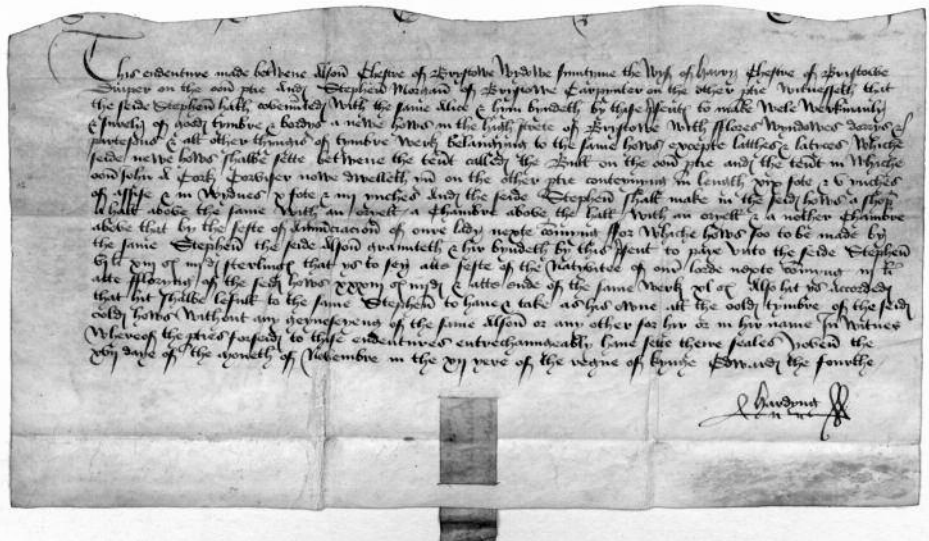 This endenture made betwene Alson Chestre of Bristowe Wydowe sumtyme the Wyf of Harry Chestre of Bristowe
Draper on the oon ptie And Stephen Morgan of Bristowe Carpynter on the other ptie Witnesseth that
the seide Stephen hath covenanted with the same Alice & hym byndeth by these psents to make wele werkmanly
& suerly of good tymbre & bordys a newe hows in the high strete of Bristowe with flores wyndowes dorrys &
partesons & all other thyngis of tymbre werk belangyng to the same hows excepte latthes & latices Whiche
seide newe hows shalbe sette betwene the tent called the Bull on the oon ptie and the tent in Whiche
oon John a Cork Corviser nowe dwelleth in on the other ptie conteynyng in length xix fote & v ynches
of assise & in wydnes x fote & iiij ynches And the seide Stephen shall make in the seid hows a shop
a hall above the same with an oryell a Chambre above the hall with an oryell & a nother Chambre
above that by the feste of Annunciacion of oure lady nexte comyng ffor whiche hows soo to be made by
the same Stephen the seide Alson graunteth & hir byndeth by this psent to paye unto the seide Stephen
vj li xiij s iiij d sterling that ys to sey atte feste of the Nativitee of our lorde nexte comyng iij li
atte fflorying of the seid hows xxxiij s iiij d & atte ende of the same werk xl s Also hit ys accorded
that hit shalbe lefull to the same Stephen to have & take as his owne all the oold tymbre of the seid
oold hows without any geynseyeng of the same Alson or any other for hir or in hir name In Witnes
whereof the pties forseid to these endentures entrechaungeably have sette theire seales yoven the
xvij daye of the moneth of Novembre in the xij yere of the regne of kynge Edward the fourthe
Hardyng